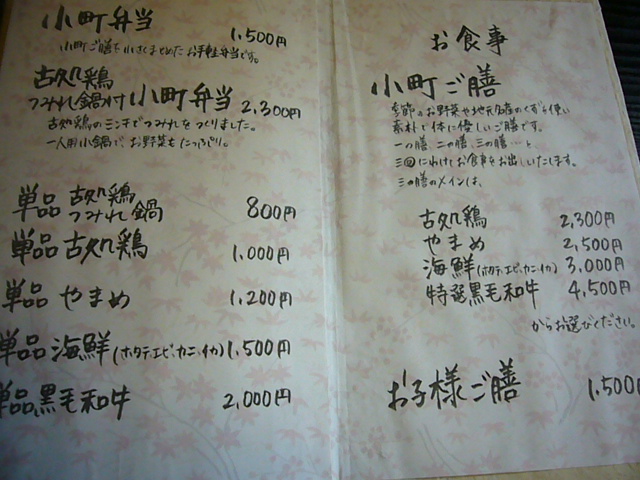 小町弁当 1,500円
小町ご膳を小さくまとめたお手軽弁当です。
古処鶏
つみれ鍋付小町弁当 2,300円
古処鶏のミンチでつみれをつくりました。
一人用小鍋で、お野菜もたっぷり。
単品 古処鶏
つみれ鍋 800円
単品 古処鶏 1,000円
単品 やまめ 1,200円
単品 海鮮(ホタテ・エビ・カニ・イカ) 1,500円
単品 黒毛和牛 2,000円
お食事
小町ご膳
季節のお野菜や地元名産のくずを使い
素朴で体に優しいご膳です。
一の膳 二の膳、三の膳…と、
三回にわけてお食事をお出しいたします。
三の膳のメインは、
古処鶏 2,300円
やまめ 2,500円
海鮮(ホタテ・エビ・カニ・イカ) 3,000円
特選黒毛和牛 4,500円
からお選びください。
お子様ご膳 1,500円